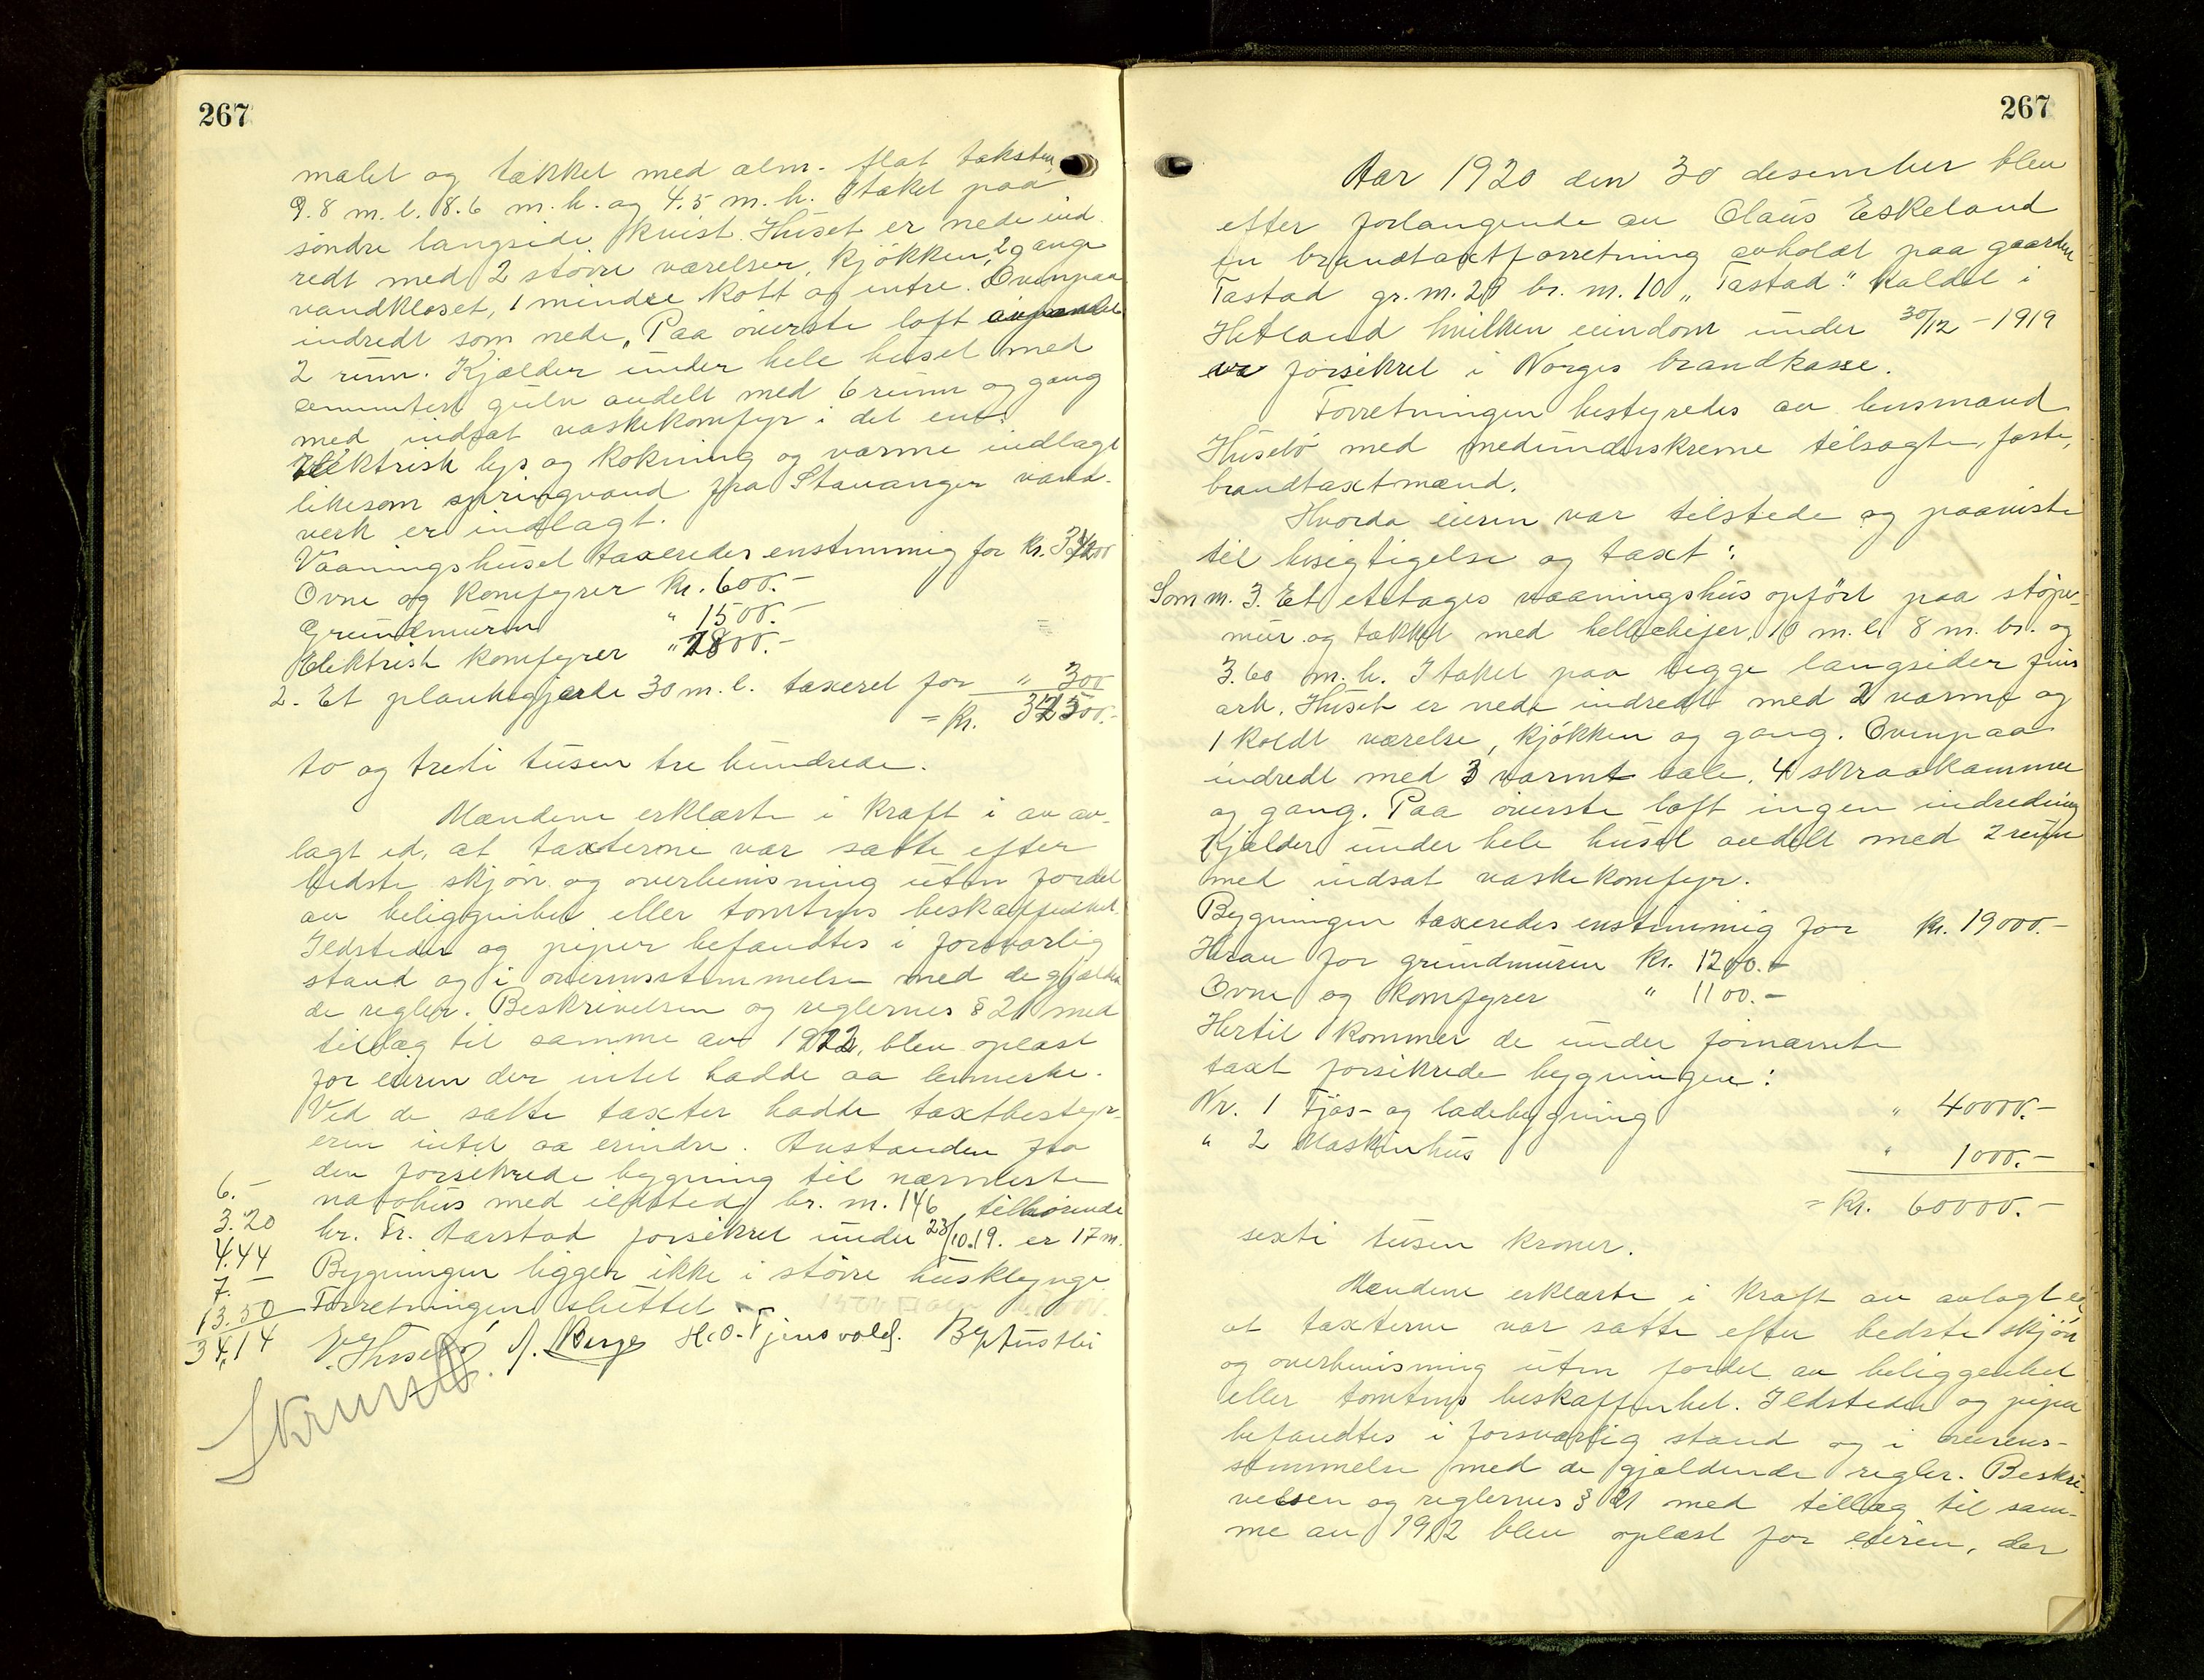 267
malet og tækket med alm. flat taksten
9.8 m. l. 8.6 m. b. og 4.5 m. h. I taket paa
söndre langside kvist. Huset er nede ind
redt med 2 större værelser, kjökken, 2 gange
vandkloset, 1 mindre kott og entre. Ovenpaa
indredt som nede. Paa överste loft
2 rum. Kjælder under hele huset med
cementert gulv avdelt med 6 rum og gang
med indsat vaskekomfyr i det ene.
Elektrisk lys og kokning og varme indlagt
likesom springvand fra Stavanger vand-
verk er indlagt.
Vaaningshuset taxeredes enstemmig for kr.
Ovne og komfyrer kr. 600.-
Grundmuren " 1500.-
Elektrisk komfyrer "
2. Et plankegjerde 30 m. l. taxeret for " 300
= kr.
to og treti tusen tre hundrede.
Mændene erklærte i kraft i av av-
lagt ed, at taxterne var satte efter
bedste skjön og overbevisning uten fordel
av beliggenhet eller tomtens beskaffenhet.
Ildsteder og piper befandtes i forsvarlig
stand og i overensstemmelse med de gjælden
de regler. Beskrivelsen og reglernes § 21 med
tillæg til samme av 1912, blev oplæst
for eieren der intet hadde aa bemerke.
Ved de satte taxter hadde taxtbestyr-
eren intet aa erindre. Avstanden fra
den forsikrede bygning til nærmeste
nabohus med ildsted br. nr. 146 tilhörende
hr. Fr. Aarstad forsikret under 23/10.19. er 17 m.
Bygningen ligger ikke i större husklynge.
Forretningen sluttet
6.-
3.20
4.44
7.-
13.50
34,14
Husebö. J. Berge H. O. Tjensvold.
267
Aar 1920 den 30 desember blev
efter forlangende av Claus Eskeland
en brandtaxtforretning avholdt paa gaarden
Tastad gr. nr. 28 br. nr. 10 „Tastad" kaldet i
Hetland hvilken eiendom under 30/12 - 1919
var forsikret i Norges brandkasse.
Forretningen bestyredes av lensmand
Husebö med medunderskrevne tilsagte, faste,
brandtaxtmænd.
Hvorda eieren var tilstede og paaviste
til besigtigelse og taxt:
Som nr. 3. Et etetages vaaningshus opfört paa stöpe-
mur og tækket med hellebeijer, 10 m. l. 8 m. br. og
3.60 m. h. I taket paa begge langsider fins
ark. Huset er nede indredt med 2 varme og
1 koldt værelse, kjökken og gang. Ovenpaa
indredt med 3 varmt sale, 4 skraakammer
og gang. Paa överste loft ingen indredning
Kjælder under hele huset avdelt med 2 rum
med indsat vaskekomfyr.
Bygningen taxeredes enstemmig for kr. 19000.-
Herav for grundmuren kr. 1200.-
Ovne og komfyrer " 1100.-
Hertil kommer de under fornævnte
taxt forsikrede bygninger:
Nr. 1 Fjös- og ladebygning " 40000.-
" 2 Maskinhus " 1000.-
= kr. 60000.-
sexti tusen kroner.
Mændene erklærte i kraft av avlagt ed
at taxterne var satte efter bedste skjön
og overbevisning uten fordel av beliggenhet
eller tomtens beskaffenhet. Ildsteder og piper
befandtes i forsvarlig stand og i overens-
stemmelse med de gjældende regler. Beskri-
velsen og reglernes § 21 med tillæg til sam-
me av 1912 blev oplæst for eieren, der